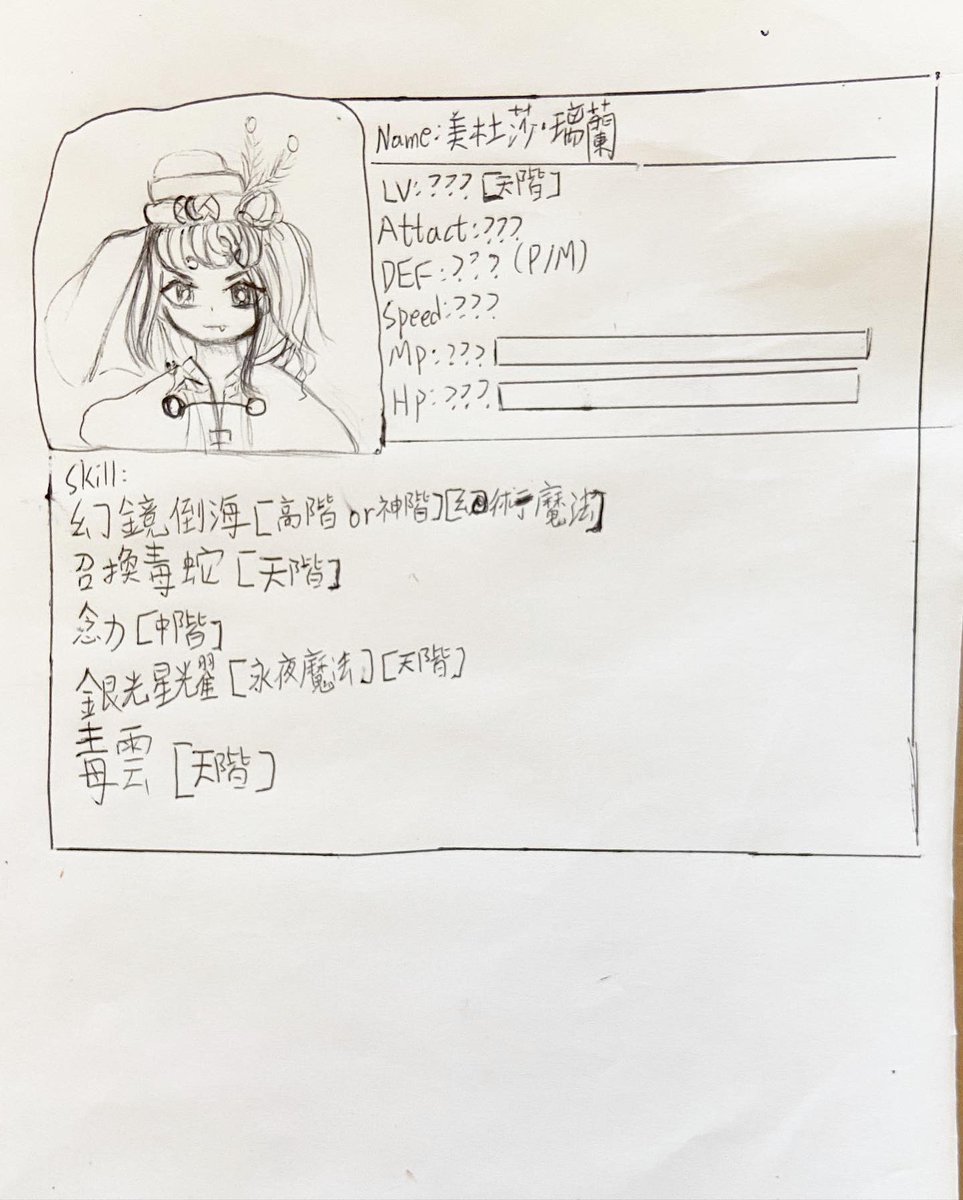 Name:美杜莎·瑞蘭
LV:???[天階]
Attact:???
DEF:???(P/M)
Speed:???
Mp:???
Hp:???
Skill:
幻鏡倒海[高階or神階][幻術魔法]
召換毒蛇[天階]
念力[中階]
銀光星耀[永夜魔法][天階]
毒雲[天階]